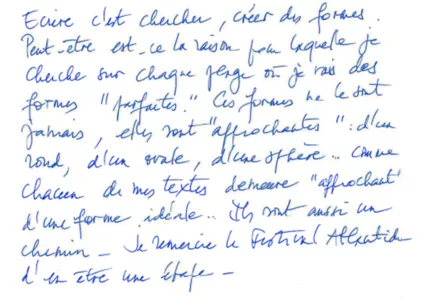 Ecrire c'est chercher, créer des formes.
Peut-être est-ce la raison pour laquelle je
cherche sur chaque plage où je vais des
formes "parfaites". Ces formes ne le sont
jamais, elles sont "approchantes" : d'un
rond, d'un ovale, d'une sphère... comme
chacun de mes textes demeure "approchant"
d'une forme idéale... Ils sont aussi un
chemin - Je remercie le Festival Atlantide
d'en être une étape -